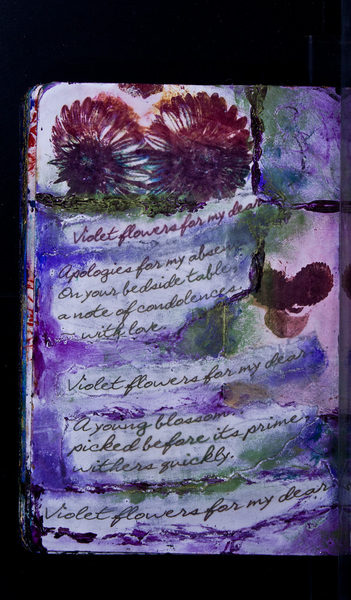 Violet flowers for my dear
Apologies for my absen
On your bedside table,
a note of condolences.
with love.
Violet flowers for my dear
A young blossom,
picked before its prime
withers quickly.
Violet flowers for my dear